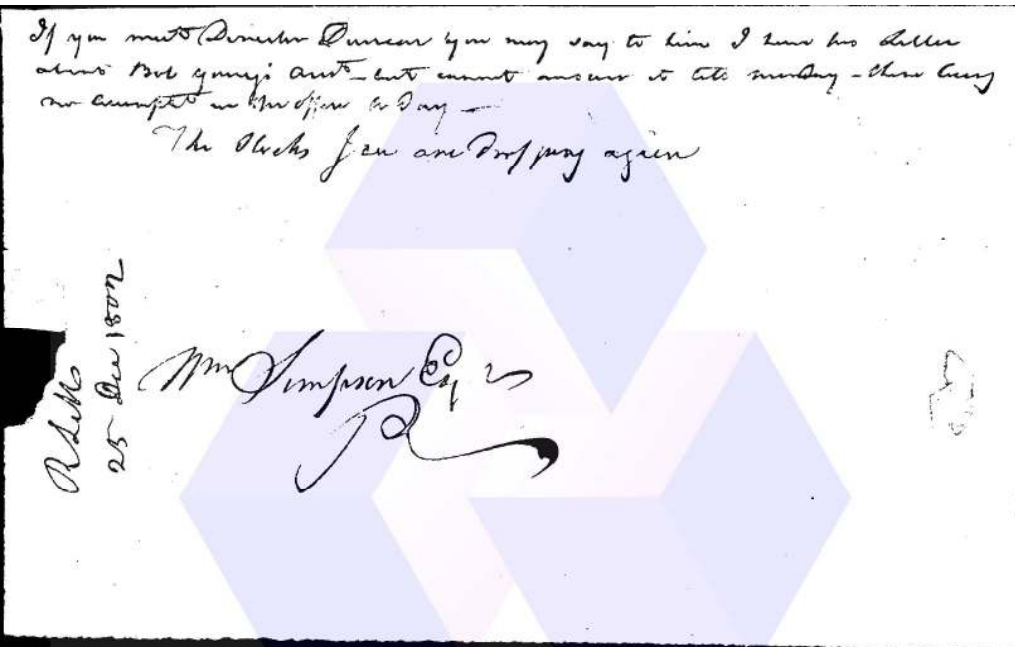 If you meet Director Duncan you may say to him I have his Letter
about Bob young's Acct - but cannot answer it till monday - there being
no accomptt in the office to Day -
The Stocks I see are Dropping again
Wm Simpson Esqr
25 Dec 1802